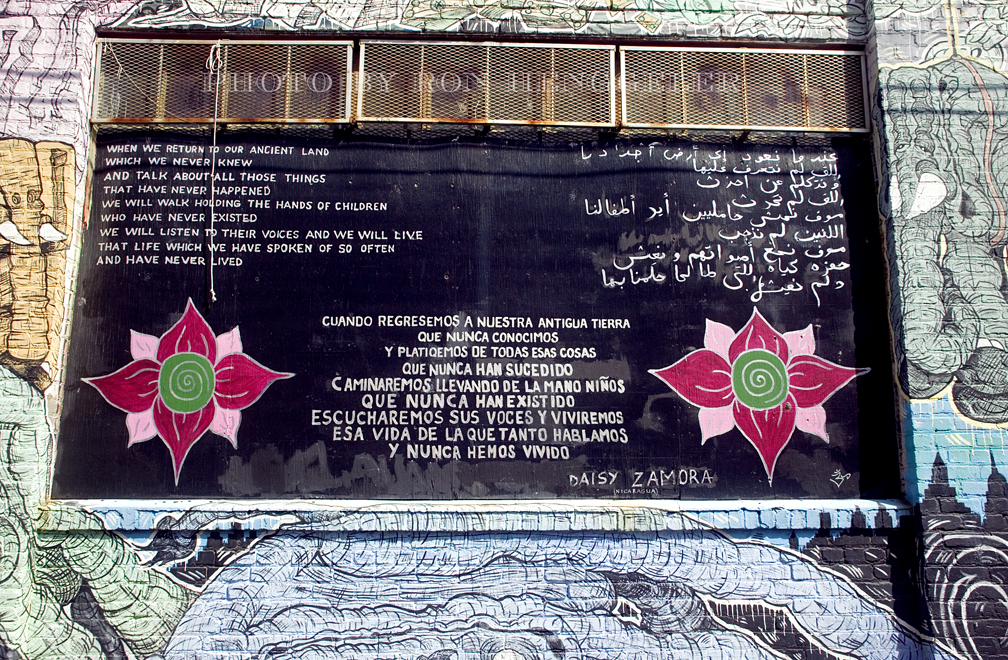 PHOTO BY RON HENGGELER
WHEN WE RETURN TO OUR ANCIENT LAND
WHICH WE NEVER KNEW
AND TALK ABOUT ALL THOSE THINGS
THAT HAVE NEVER HAPPENED
WE WILL WALK HOLDING THE HANDS OF CHILDREN
WHO HAVE NEVER EXISTED
WE WILL LISTEN TO THEIR VOICES AND WE WILL LIVE
THAT LIFE WHICH WE HAVE SPOKEN OF SO OFTEN
AND HAVE NEVER LIVED
عند ما نعود إلى أرض أجدادنا
لم نتعرف عليها
من
لم
سوف نمشي حاملين أطفالنا
لم
سوف أصواتهم و نعيش
CUANDO REGRESEMOS A NUESTRA ANTIGUA TIERRA
QUE NUNCA CONOCIMOS
Y PLATIQEMOS DE TODAS ESAS COSAS
QUE NUNCA HAN SUCEDIDO
CAMINAREMOS LLEVANDO DE LA MANO NIÑOS
QUE NUNCA HAN EXISTIDO
ESCUCHAREMOS SUS VOCES Y VIVIREMOS
ESA VIDA DE LA QUE TANTO HABLAMOS
Y NUNCA HEMOS VIVIDO
DAISY ZAMORA
(NICARAGUA)